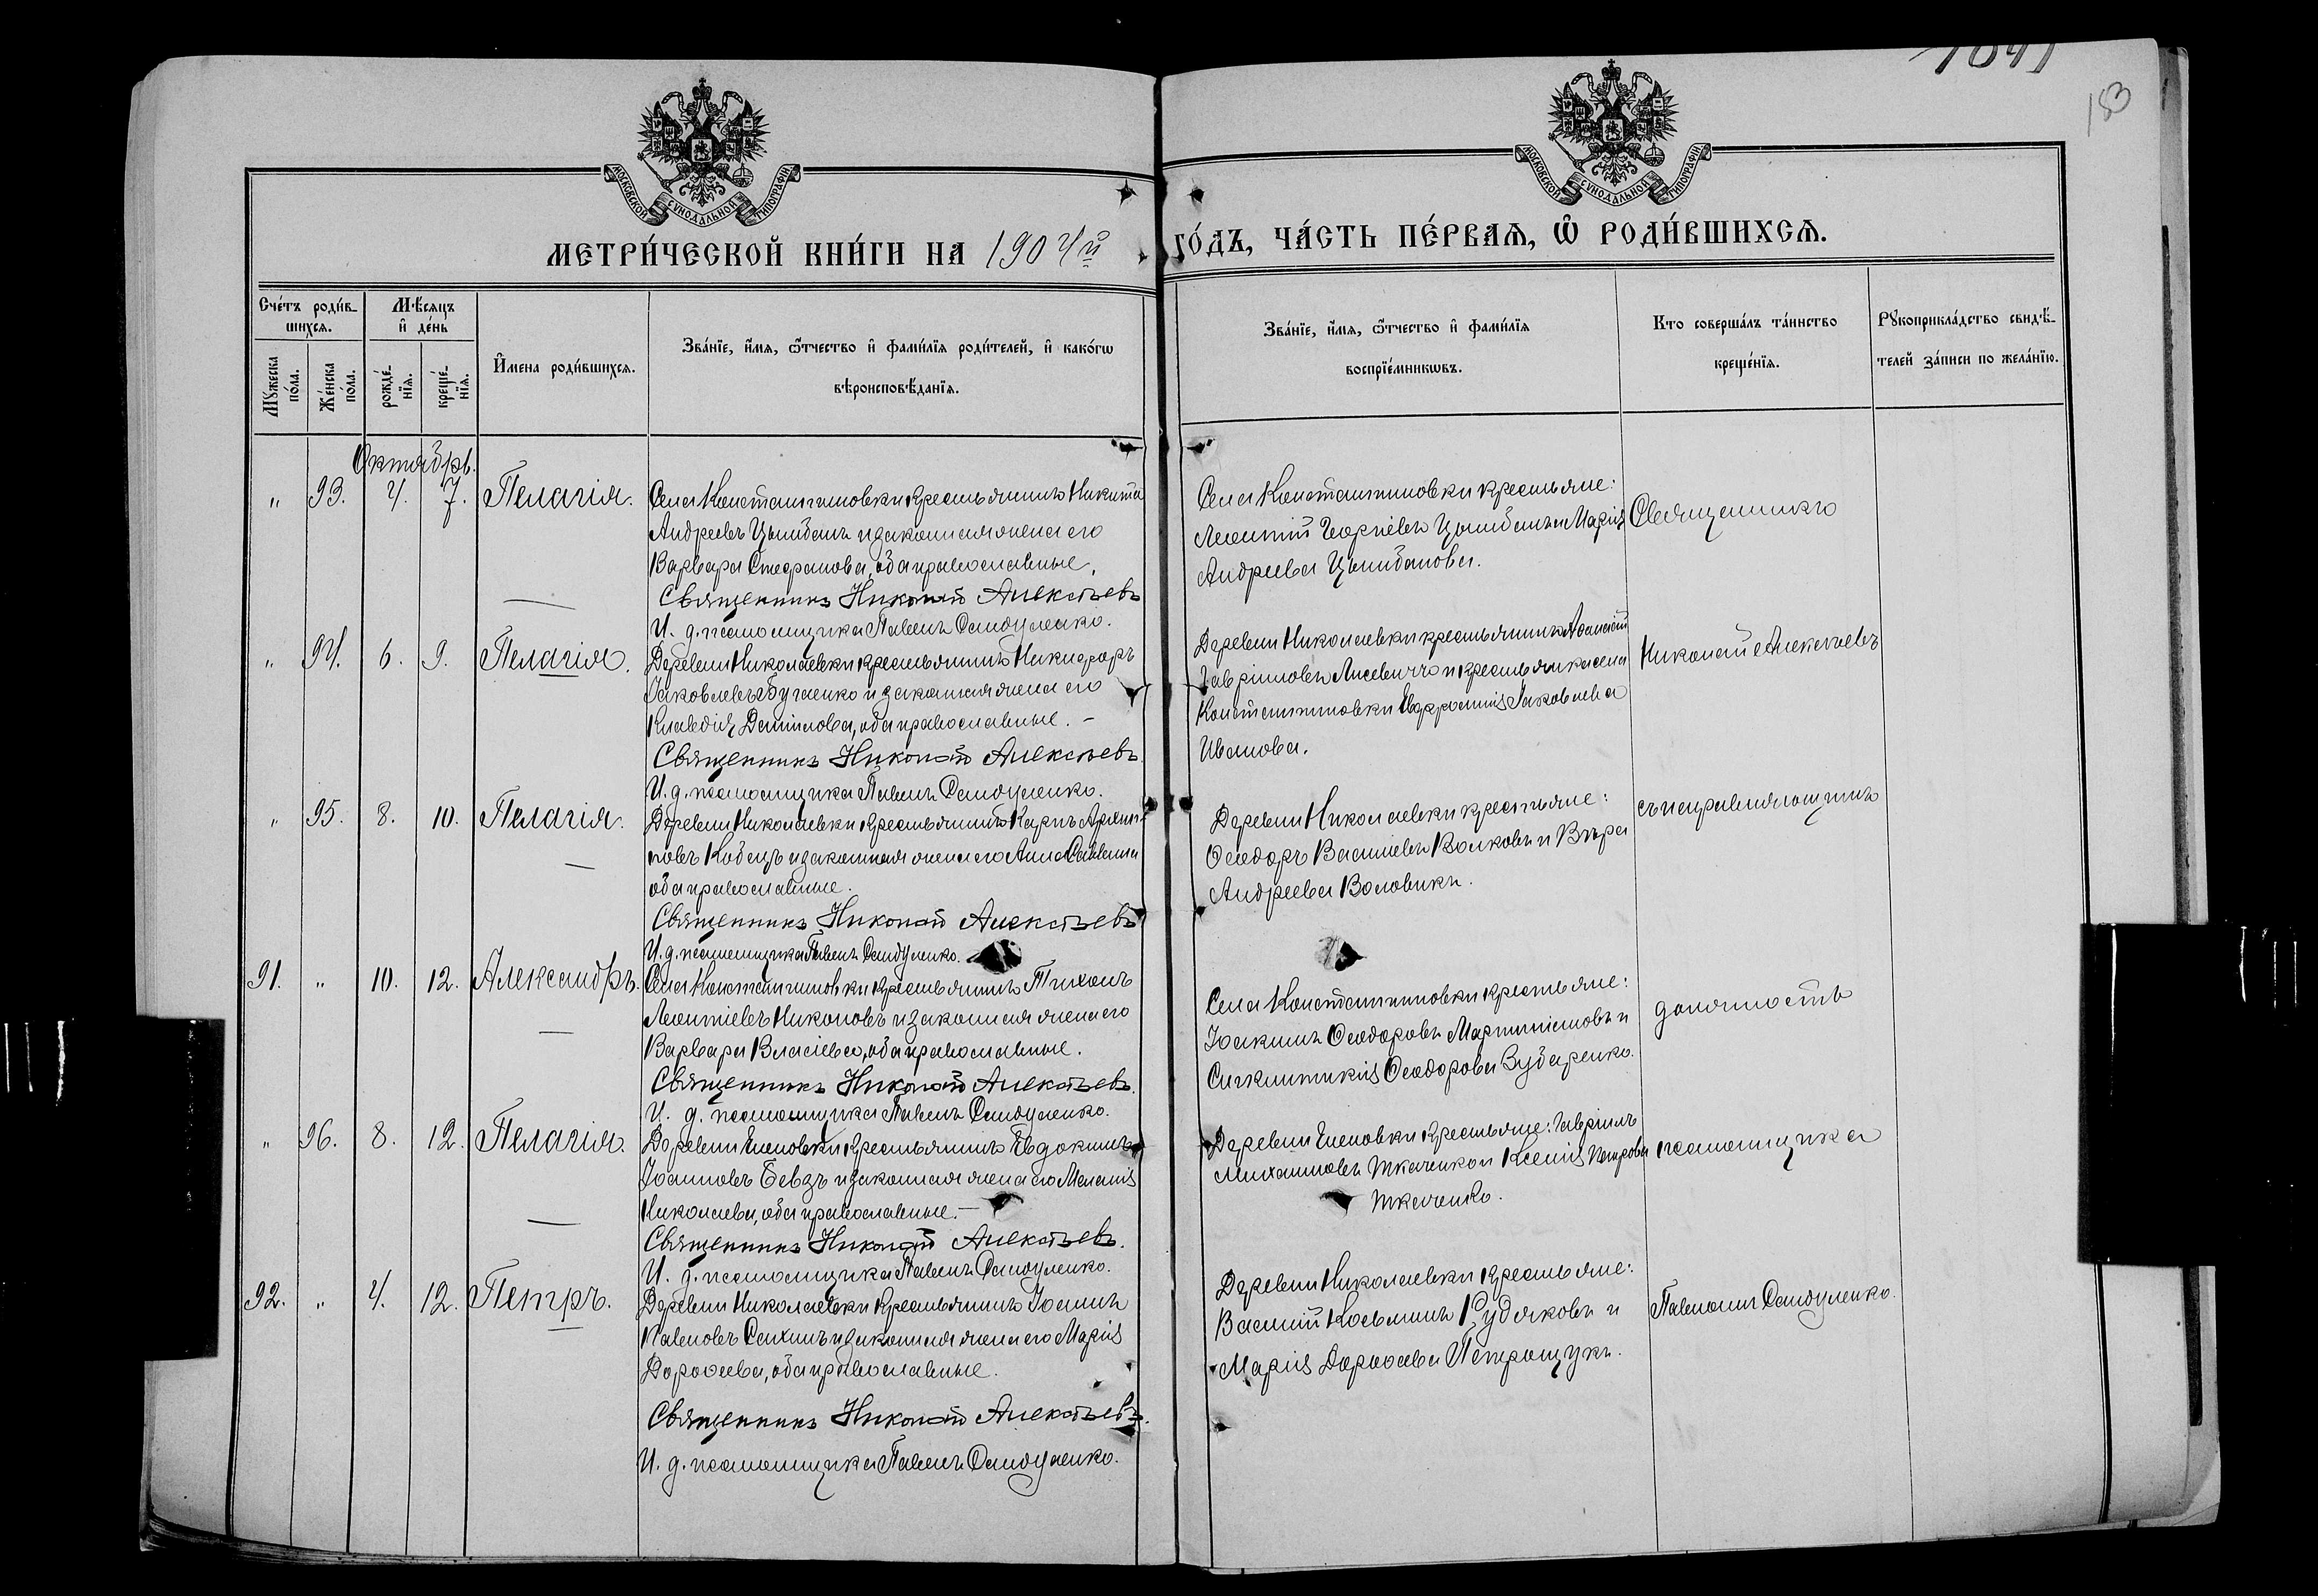 1041
183
МОСКОВСКОЙ СѴНОДАЛЬНОЙ ТИПОГРАФІИ
МОСКОВСКОЙ СѴНОДАЛЬНОЙ ТИПОГРАФІИ
МЕТРИ́ЧЕСКОЙ КНИ́ГИ НА 1904й
ГО́ДЪ, ЧА́СТЬ ПЕ́РВАѦ, Ѡ҆ РОДИ́ВШИХСѦ.
Сче́тъ роди́в-
шихсѧ.
Мꙋжеска по́ла.
Же́нска по́ла.
Мѣ́сѧцъ
и҆ де́нь
рожде́-нїѧ.
креще́-нїѧ.
И҆мена роди́вшихсѧ.
Зва́нїе, и҆́мѧ, ѻ҆́тчество и҆ фами́лїѧ роди́телей, и҆ како́гѡ
вѣроисповѣ́данїѧ.
Зва́нїе, и҆́мѧ, ѻ҆́тчество и҆ фами́лїѧ
воспрїе́мникѡвъ.
Кто соверша́лъ та́инство
креще́нїѧ.
Рꙋкоприкла́дство свидѣ́-
телей за́писи по жела́нїю.
Октябрь.
" 93. 4. 7. Пелагія.
Села Константиновки крестьянинъ Никита
Андреевъ Цымбалъ и законная жена его
Варвара Стефанова, оба православные.
Священникъ Николай Алексѣевъ
И. д. псаломщика Павелъ Сандуленко.
Села Константиновки крестьяне:
Леонтій Георгіевъ Цымбалъ и Марія
Андреева Цымбалова.
Священникъ
" 94. 6. 9. Пелагія.
Деревни Николаевки крестьянинъ Никифоръ
Іаковлевъ Бугаенко и законная жена его
Клавдія Даніилова, оба православные. –
Священникъ Николай Алексѣевъ
И. д. псаломщика Павелъ Сандуленко.
Деревни Николаевки крестьянинъ Афанасій
Гавріиловъ и крестьянка села
Константиновки Евфросинія Іаковлева
Иванова.
Николай Алексѣевъ
" 95. 8. 10. Пелагія.
Деревни Николаевки крестьянинъ Карпъ Архип-
повъ Кобецъ и законная жена его Анна Саввина
оба православные.
Священникъ Николай Алексѣевъ
И. д. псаломщика Павелъ Сандуленко.
Деревни Николаевки крестьяне:
Ѳеодоръ Васильевъ Волковъ и Вѣра
Андреева Воловикъ.
съ исправляющимъ
91. " 10. 12. Александръ.
Села Константиновки крестьянинъ Тихонъ
Леонтіевъ Никоновъ и законная жена его
Варвара Власіева, оба православные.
Священникъ Николай Алексѣевъ
И. д. псаломщика Павелъ Сандуленко.
Села Константиновки крестьяне:
Іоакимъ Ѳеодоровъ Мартиніановъ и
Синклитикія Ѳеодорова Зубаренко.
должность
" 96. 8. 12. Пелагія.
Деревни Еленовки крестьянинъ Евдокимъ
Іоанновъ Бевзъ и законная жена его Меланія
Николаева, оба православные. –
Священникъ Николай Алексѣевъ.
И. д. псаломщика Павелъ Сандуленко.
Деревни Еленовки крестьяне: Гавріилъ
Михаиловъ Ткаченко и Ксенія Петрова
Ткаченко.
псаломщика
92. " 4. 12. Петръ.
Деревни Николаевки крестьянинъ Іоаннъ
Павловъ Сахинъ и законная жена его Марія
Дороѳеева, оба православные.
Священникъ Николай Алексѣевъ.
И. д. псаломщика Павелъ Сандуленко.
Деревни Николаевки крестьяне:
Василій Косьминъ Рудяковъ и
Марія Дороѳеева Петрощукъ.
Павломъ Сандуленко.